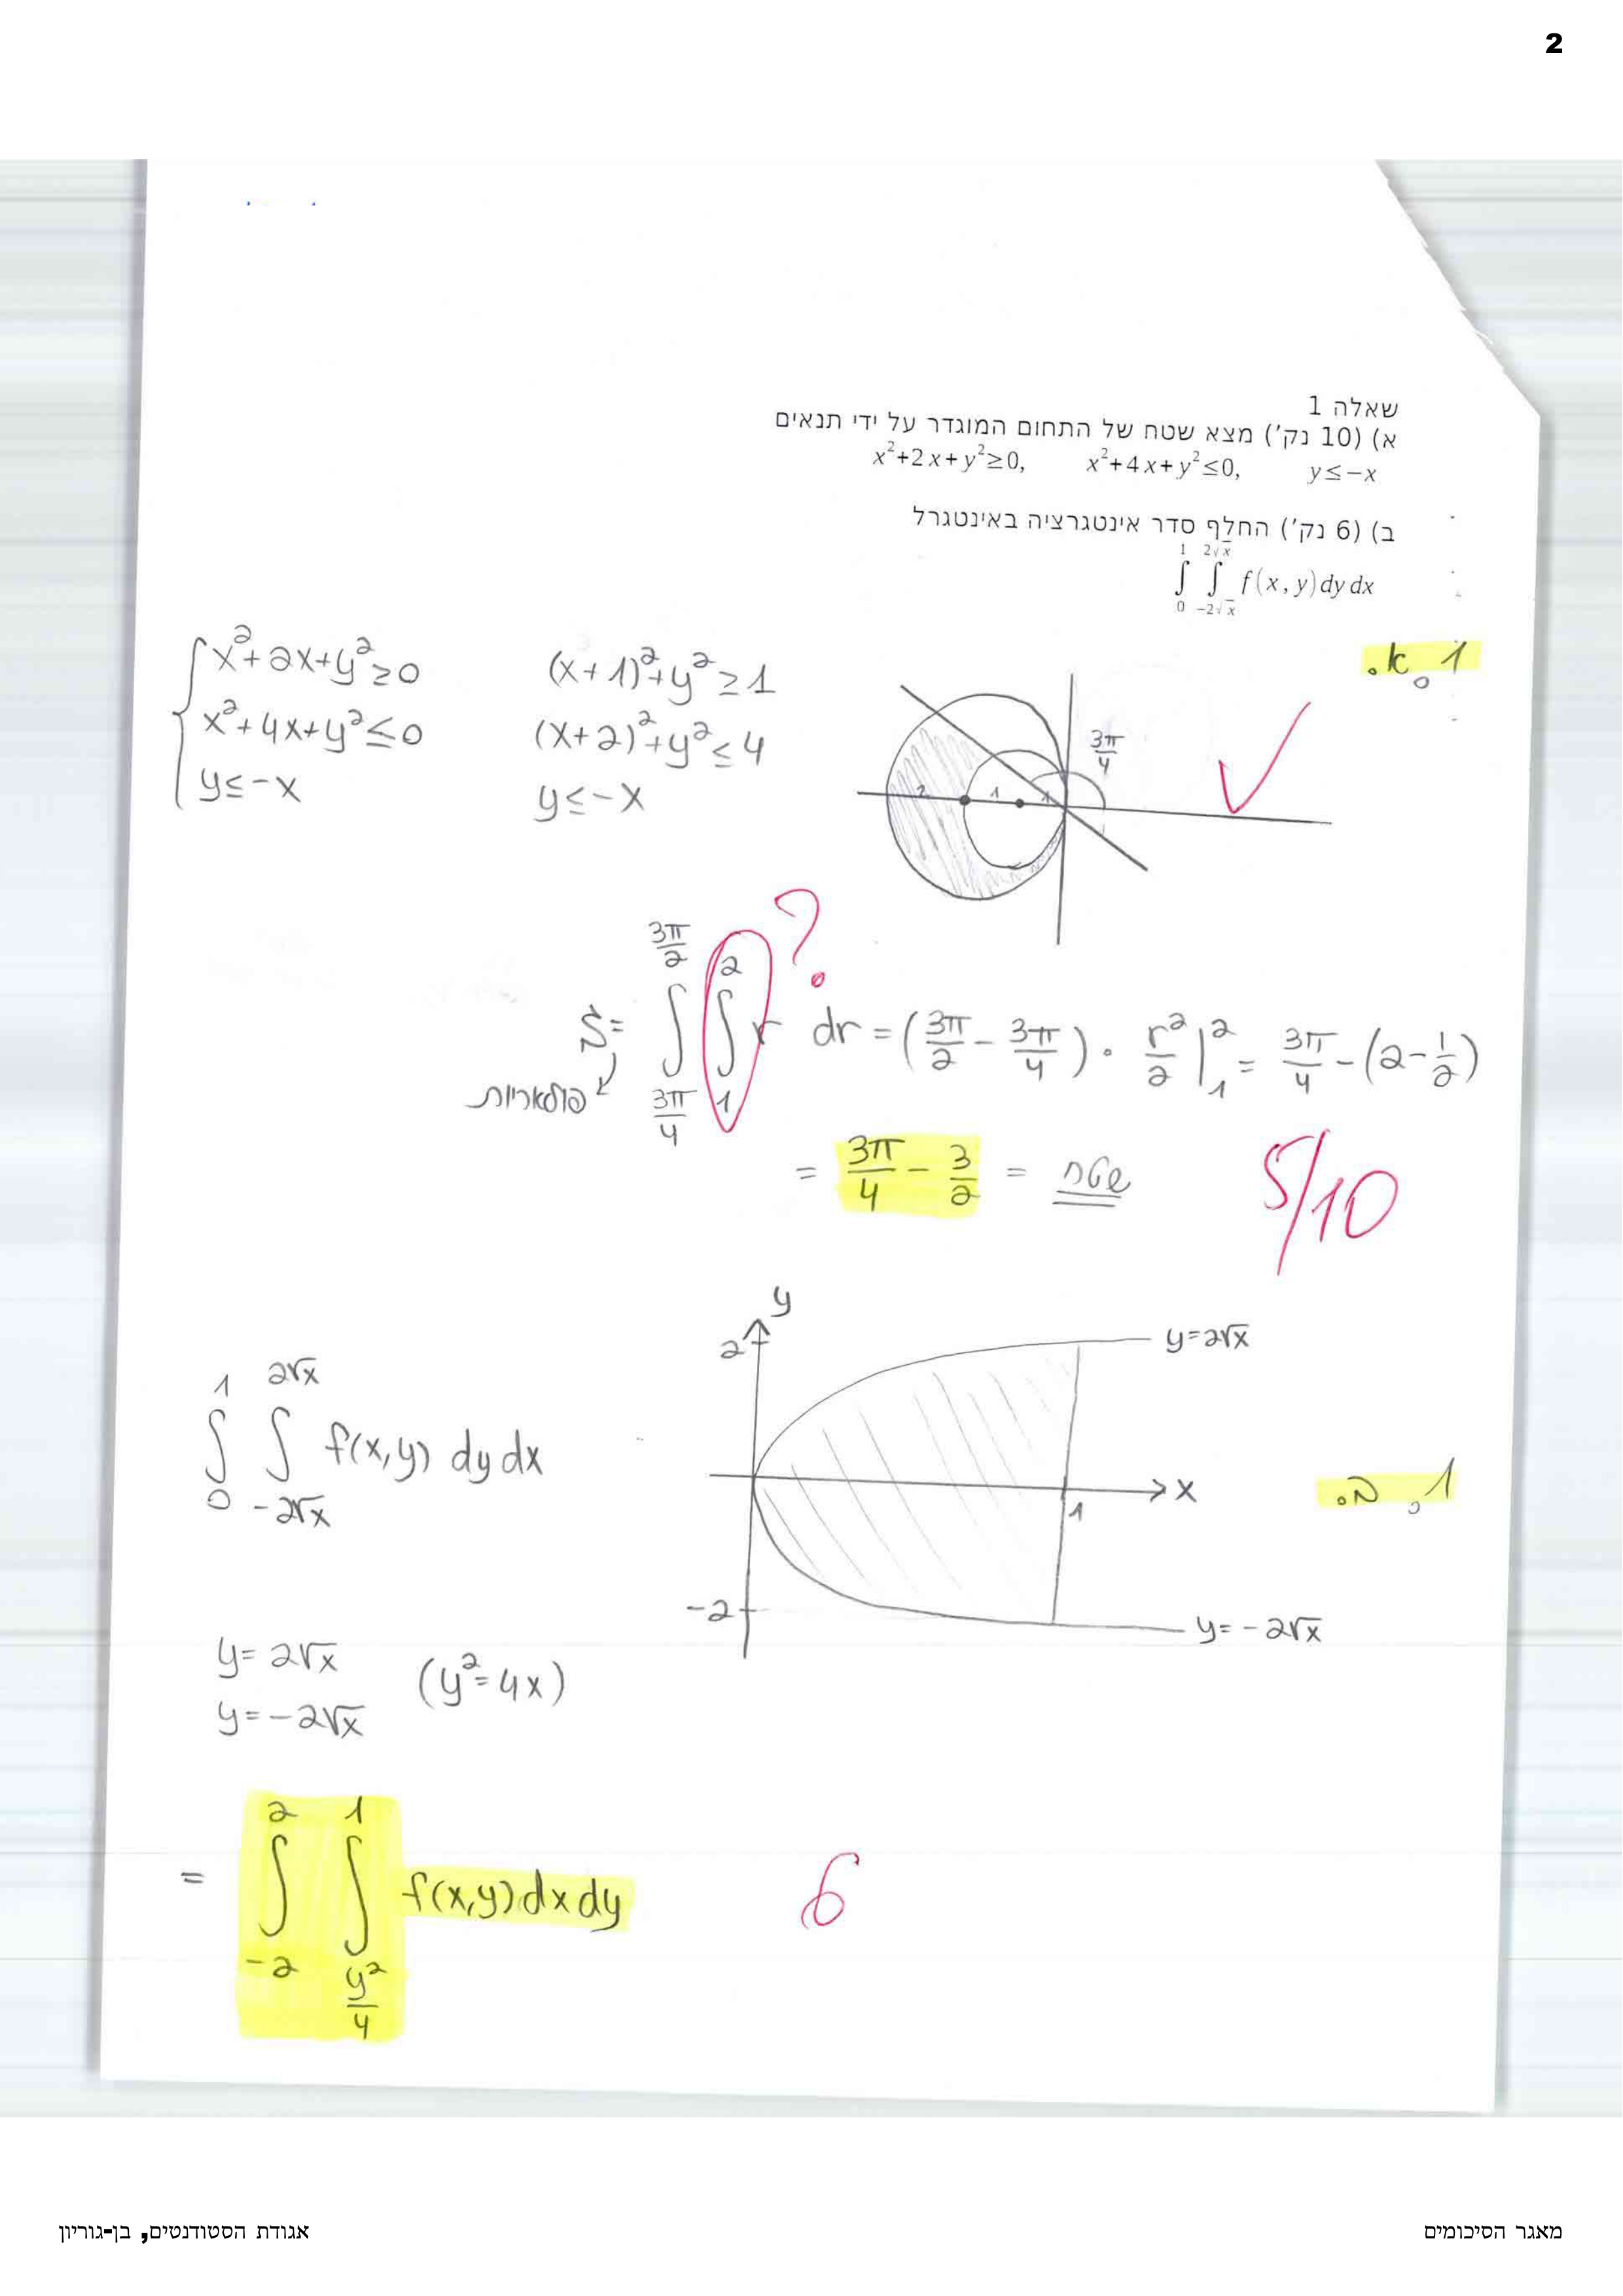 2
שאלה 1
א) (10 נק') מצא שטח של התחום המוגדר על ידי תנאים
x²+2x+y²≥0, x²+4x+y²≤0, y≤-x
ב) (6 נק') החלף סדר אינטגרציה באינטגרל
∫₀¹ ∫_{-2√x}^{2√x} f(x,y) dy dx
1.א.
x²+2x+y²≥0 (x+1)²+y²≥1
x²+4x+y²≤0 (x+2)²+y²≤4
y≤-x y≤-x
3π/4
2 1 1
?
S= ∫_{3π/4}^{3π/2} ∫₁² r dr = (3π/2 - 3π/4) · r²/2 |₁² = 3π/4 - (2-1/2)
פולאריות
= 3π/4 - 3/2 = שטח
5/10
1.ב.
∫₀¹ ∫_{-2√x}^{2√x} f(x,y) dy dx
y
2
y=2√x
x
1
-2
y=-2√x
y=2√x
y=-2√x (y²=4x)
= ∫_{-2}^{2} ∫_{y²/4}^{1} f(x,y) dx dy
6
מאגר הסיכומים
אגודת הסטודנטים, בן-גוריון